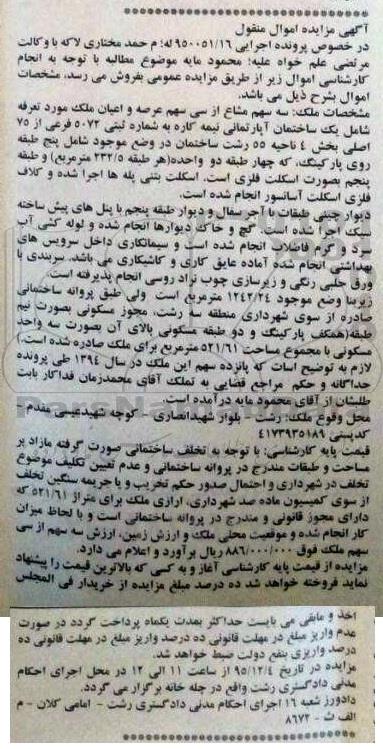 آگهی مزایده اموال منقول
در خصوص پرونده اجرایی ۹۵۰۰۵۱/۱۶ له؛ م حمد مختاری لاکه با وکالت
مرتضی علم خواه علیه؛ محمود مایه موضوع مطالبه با توجه به انجام
کارشناسی اموال زیر از طریق مزایده عمومی بفروش می رسد، مشخصات
اموال بشرح ذیل می باشد.
مشخصات ملک: سه سهم مشاع از سی سهم عرصه و اعیان ملک مورد تعرفه
شامل یک ساختمان آپارتمانی نیمه کاره به شماره ثبتی ۵۰۷۲ فرعی از ۷۵
اصلی بخش ۴ ناحیه ۵۵ رشت ساختمان در وضع موجود شامل پنج طبقه
روی پارکینگ، که چهار طبقه دو واحده(هر طبقه ۲۳۲/۵ مترمربع) و طبقه
پنجم بصورت اسکلت فلزی است. اسکلت بتنی پله ها اجرا شده و کلاف
فلزی اسکلت آسانسور انجام شده است.
دیوار چینی طبقات با آجر سفال و دیوار طبقه پنجم با پنل های پیش ساخته
سبک اجرا شده است. گچ و خاک دیوارها انجام شده و لوله کشی آب
سرد و گرم فاضلاب انجام شده است و سیمانکاری داخل سرویس های
بهداشتی انجام شده آماده عایق کاری و کاشیکاری می باشد. سربندی با
ورق حلبی رنگی و زیرسازی چوب نراد روسی انجام پذیرفته است.
زیربنا وضع موجود ۱۲۴۲/۲۴ مترمربع است ولی طبق پروانه ساختمانی
صادره از سوی شهرداری منطقه سه رشت، مجوز مسکونی بصورت نیم
طبقه(همکف پارکینگ و دو طبقه مسکونی بالای آن بصورت سه واحد
مسکونی با مجموع مساحت ۵۲۱/۶۱ مترمربع برای ملک صادره شده است.)
لازم به توضیح اسات که پانزده سهم این ملک در سال ۱۳۹۴ طی پرونده
جداگانه و حکم مراجع قضایی به تملک آقای محمدزمان فداکار بابت
طلبشان از آقای محمود مایه درآمده است.
محل وقوع ملک: رشت - بلوار شهیدانصاری - کوچه شهیدعیسی مقدم -
کدپستی ۴۱۷۳۹۳۵۱۸۹
قیمت پایه کارشناسی: با توجه به تخلف ساختمانی صورت گرفته مازاد بر
مساحت و طبقات مندرج در پروانه ساختمانی و عدم تعیین تکلیف موضوع
تخلف در شهرداری و احتمال صدور حکم تخریب و یا جریمه سنگین تخلف
از سوی کمیسیون ماده صد شهرداری، ارازی ملک برای متراژ ۵۲۱/۶۱ که
دارای مجوز قانونی و مندرج در پروانه ساختمانی است و با لحاظ میزان
کار انجام شده و موقعیت محلی ملک و ارزش زمین، ارزش سه سهم از سی
سهم ملک فوق ۸۸۶/۰۰۰/۰۰۰ ریال برآورد و اعلام می دارد.
مزایده از قیمت پایه کارشناسی آغاز و به کسی که بالاترین قیمت را پیشنهاد
نماید فروخته خواهد شد ده درصد مبلغ مزایده از خریدار فی المجلس
اخذ و مابقی می بایست حداکثر بمدت یکماه پرداخت گردد در صورت
عدم واریز مبلغ در مهلت قانونی ده درصد واریز مبلغ در مهلت قانونی ده
درصد واریزی بنفع دولت ضبط خواهد شد.
مزایده در تاریخ ۹۵/۱۲/۴ از ساعت ۱۱ الی ۱۲ در محل اجرای احکام
مدنی دادگستری رشت واقع در چله خانه برگزار می گردد.
دادورز شعبه ۱۶ اجرای احکام مدنی دادگستری رشت - امامی کلان - م
الف ث - ۸۶۷۲